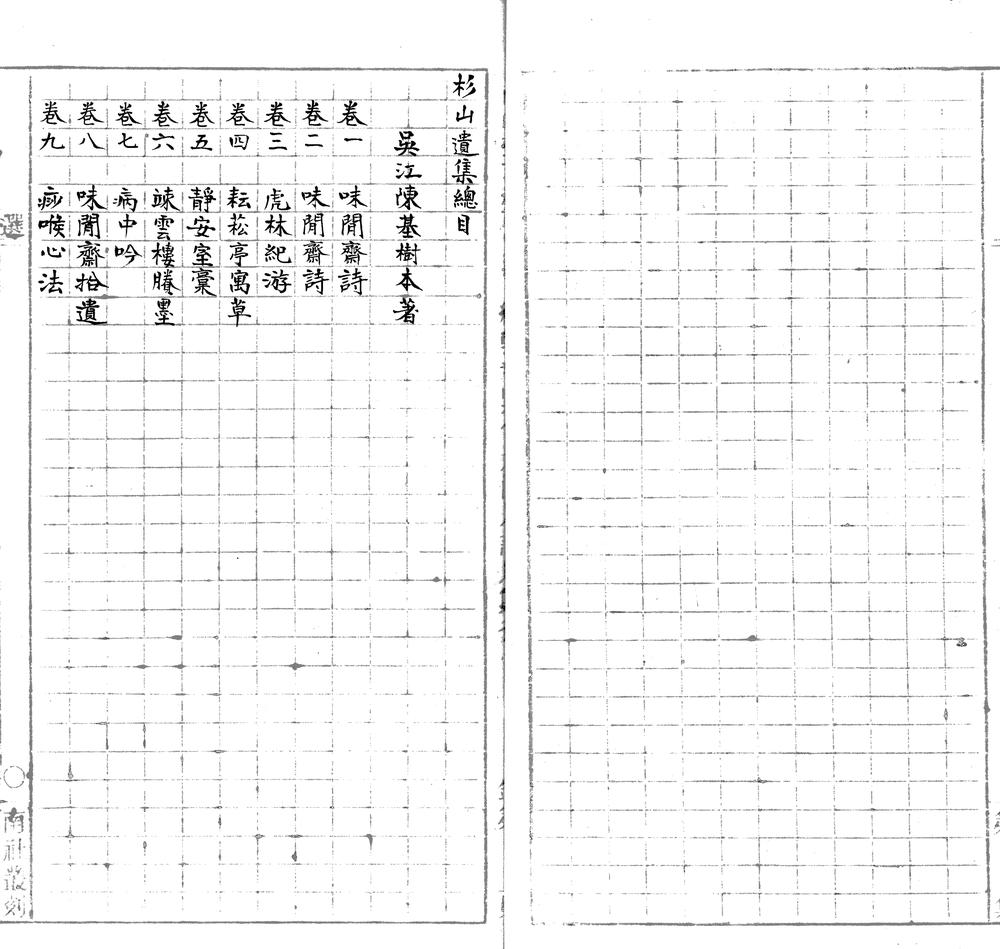 杉山遺集總目
吳江陳基樹本著
卷一 味閒齋詩
卷二 味閒齋詩
卷三 虎林紀游
卷四 耘菘亭寓草
卷五 靜安室稾
卷六 竦雲樓賸墨
卷七 病中吟
卷八 味閒齋拾遺
卷九 痧喉心法
選
南社叢刻